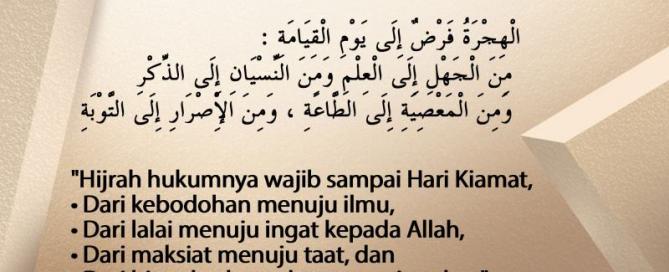 الْهِجْرَةُ فَرْضٌ إِلَى يَوْمِ الْقِيَامَةِ :
مِنَ الْجَهْلِ إِلَى الْعِلْمِ وَمِنَ النِّسْيَانِ إِلَى الذِّكْرِ
وَمِنَ الْمَعْصِيَةِ إِلَى الطَّاعَةِ ، وَمِنَ الْإِصْرَارِ إِلَى التَّوْبَةِ
"Hijrah hukumnya wajib sampai Hari Kiamat,
• Dari kebodohan menuju ilmu,
• Dari lalai menuju ingat kepada Allah,
• Dari maksiat menuju taat, dan